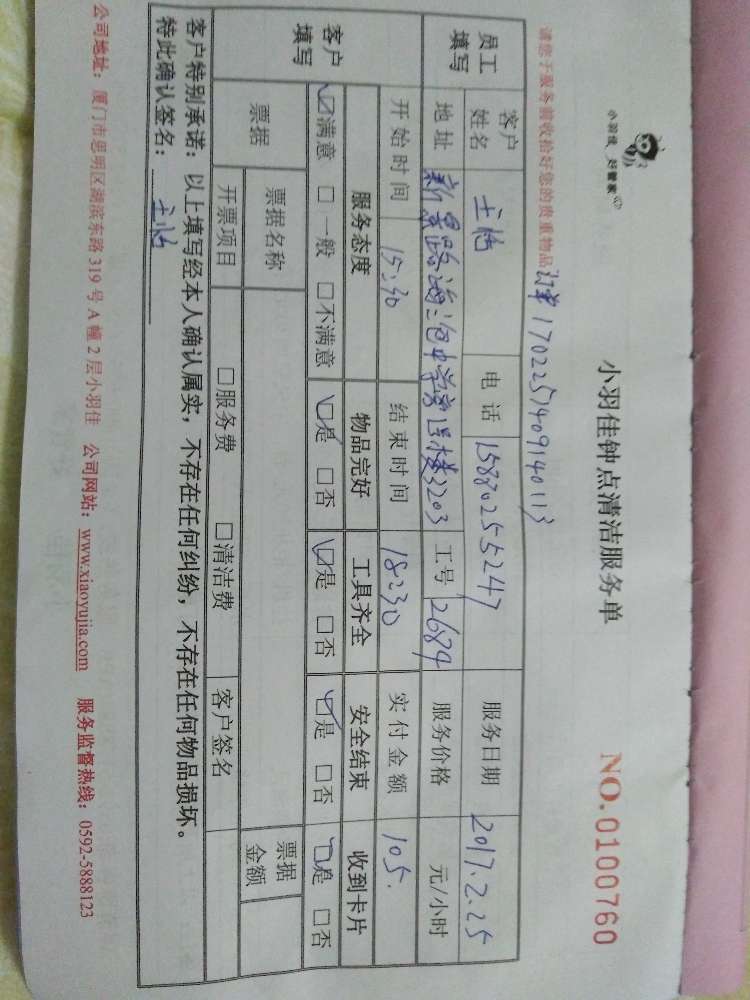 小羽佳 好管家
小羽佳钟点清洁服务单
NO.0100760
请您于服务前收拾好您的贵重物品 订单1702251409140113
员工填写 客户姓名 王怡 电话 15880255247 服务日期 2017.2.25
地址 工号 2684 服务价格 元/小时
开始时间 15:30 结束时间 18:30 实付金额 105.
客户填写 服务态度 物品完好 工具齐全 安全结束 收到卡片
☑满意 □一般 □不满意 ☑是 □否 ☑是 □否 ☑是 □否 ☑是 □否
票据 票据名称 票据金额
开票项目 □服务费 □清洁费 客户签名
客户特别承诺：以上填写经本人确认属实，不存在任何纠纷，不存在任何物品损坏。
特此确认签名： 王怡
公司地址：厦门市思明区湖滨东路319号A幢2层小羽佳 公司网站：www.xiaoyujia.com 服务监督热线：0592-5888123